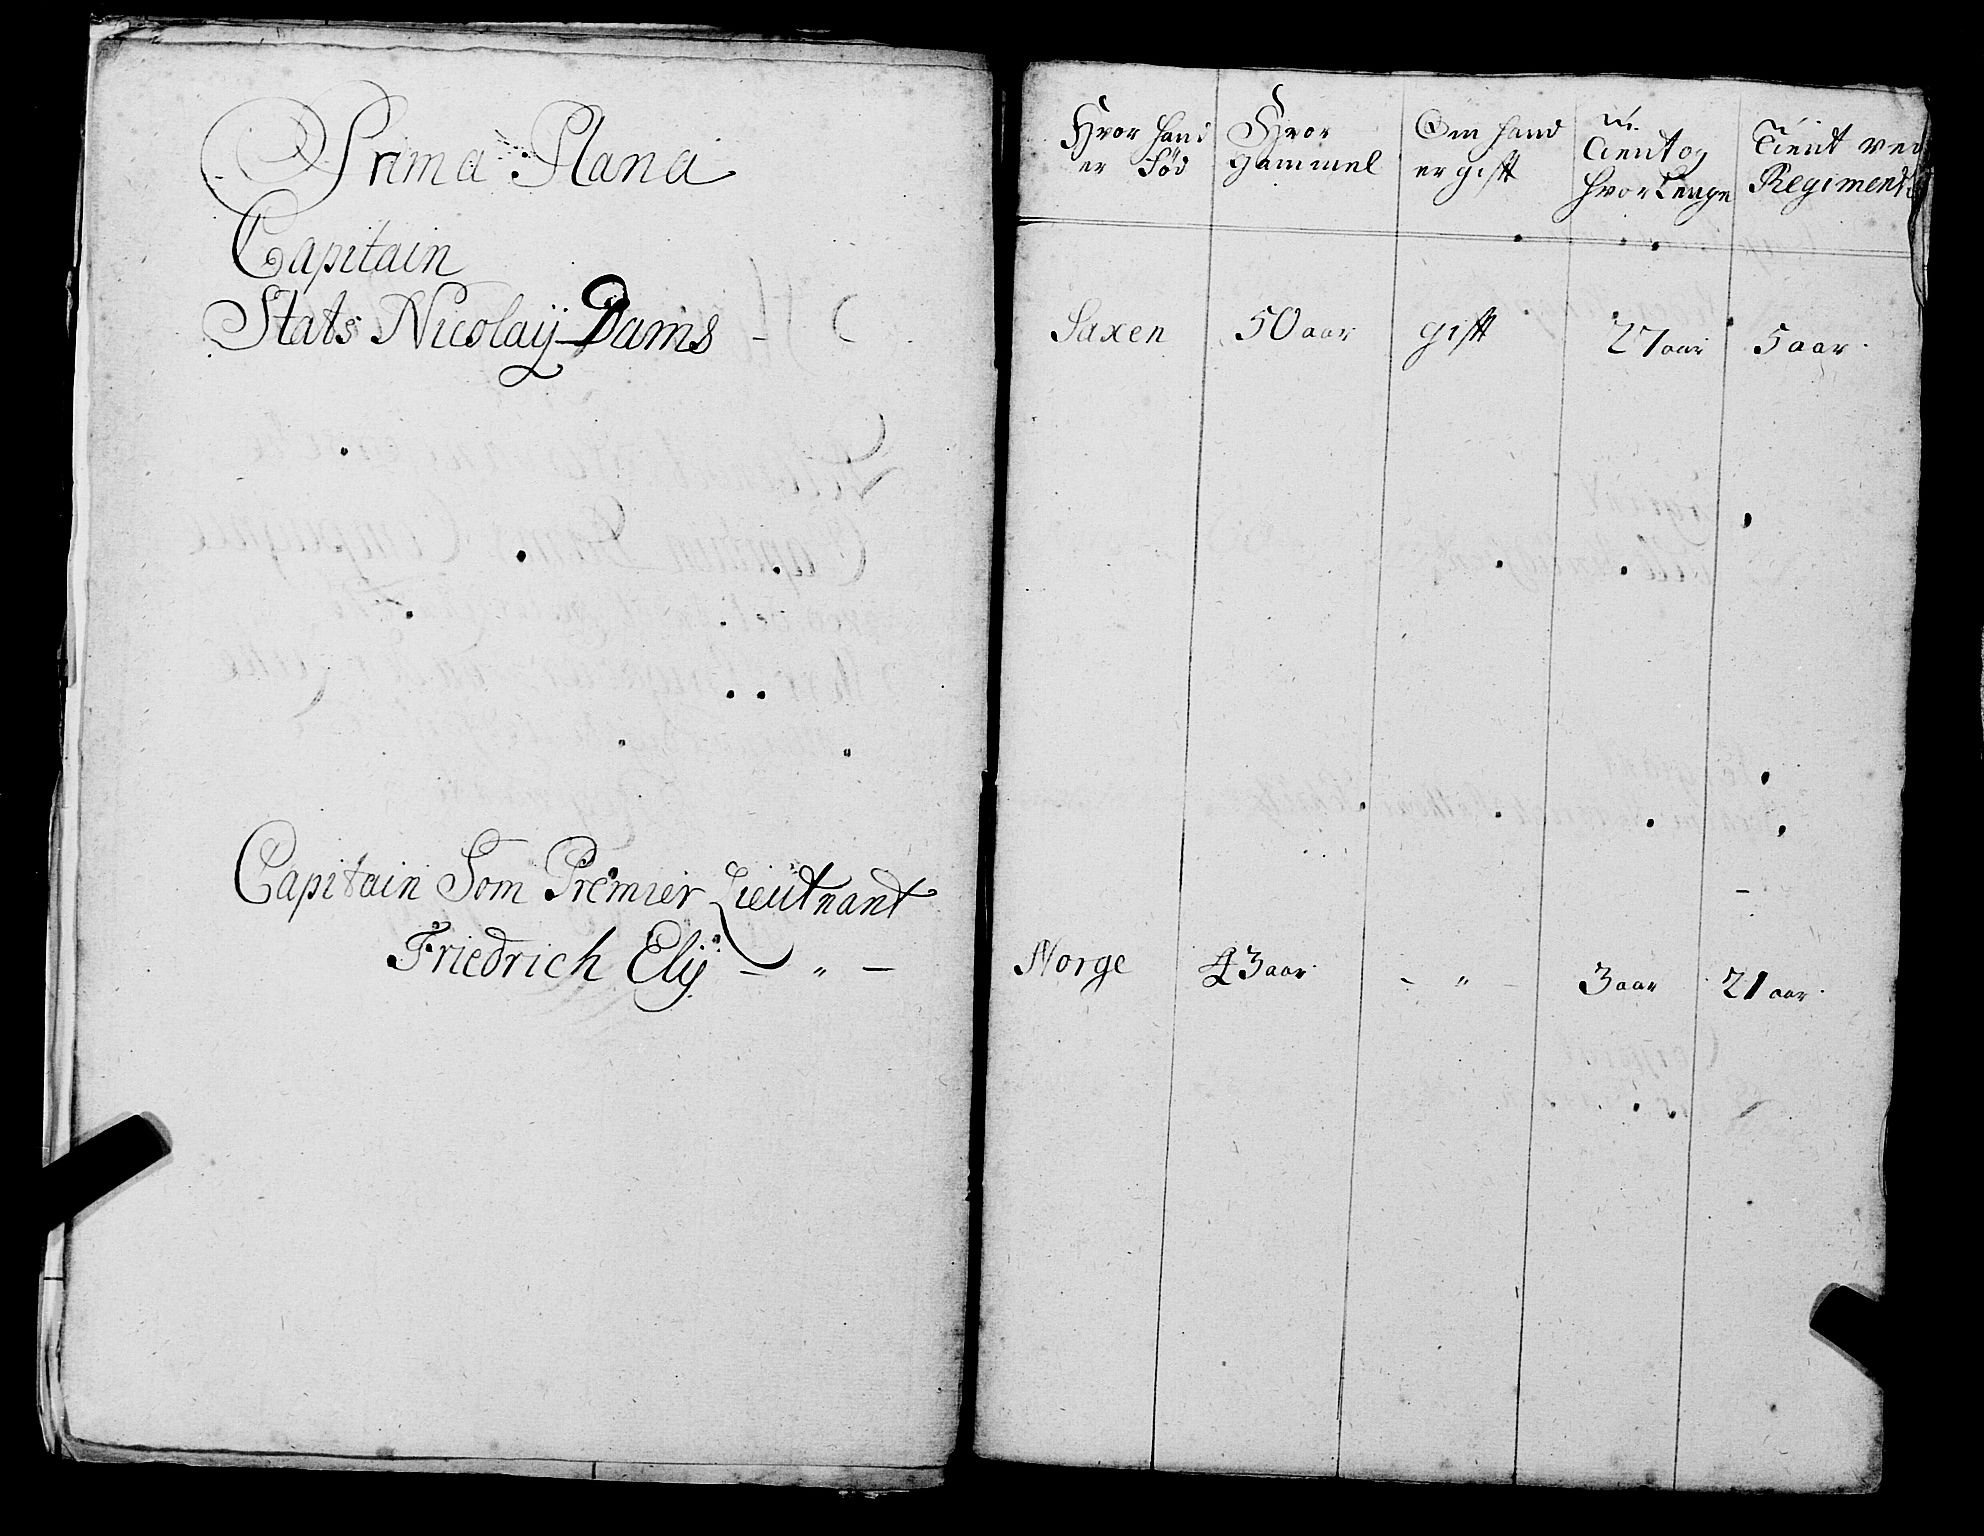 Prima Plana
Capitain
Stats Nicolaÿ Dams -
Capitain Som Premier Lieutnant
Friedrich Elÿ - " -
Hvor hand
er Fød
Hvor
Gammel
Om hand
er gift
Tient og
hvor Lenge
Tient ved
Regimente
Saxen 50 aar gift 27 aar 5 aar
Norge 43 aar - " - 3 aar 21 aar